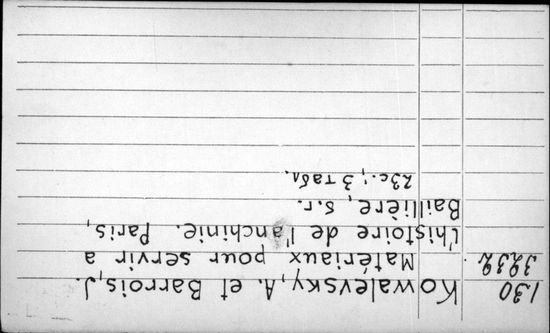 130 Kowalevsky, A. et Barrois, J.
3923a Matériaux pour servir a
l'histoire de l'anchinie. Paris,
Baillière, s.r.
23c.; 3 табл.